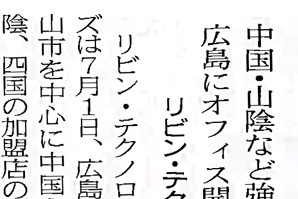 中国・山陰など強
広島にオフィス開
リビン・テク
リビン・テクノロ
ズは７月１日、広島
山市を中心に中国
陰、四国の加盟店の